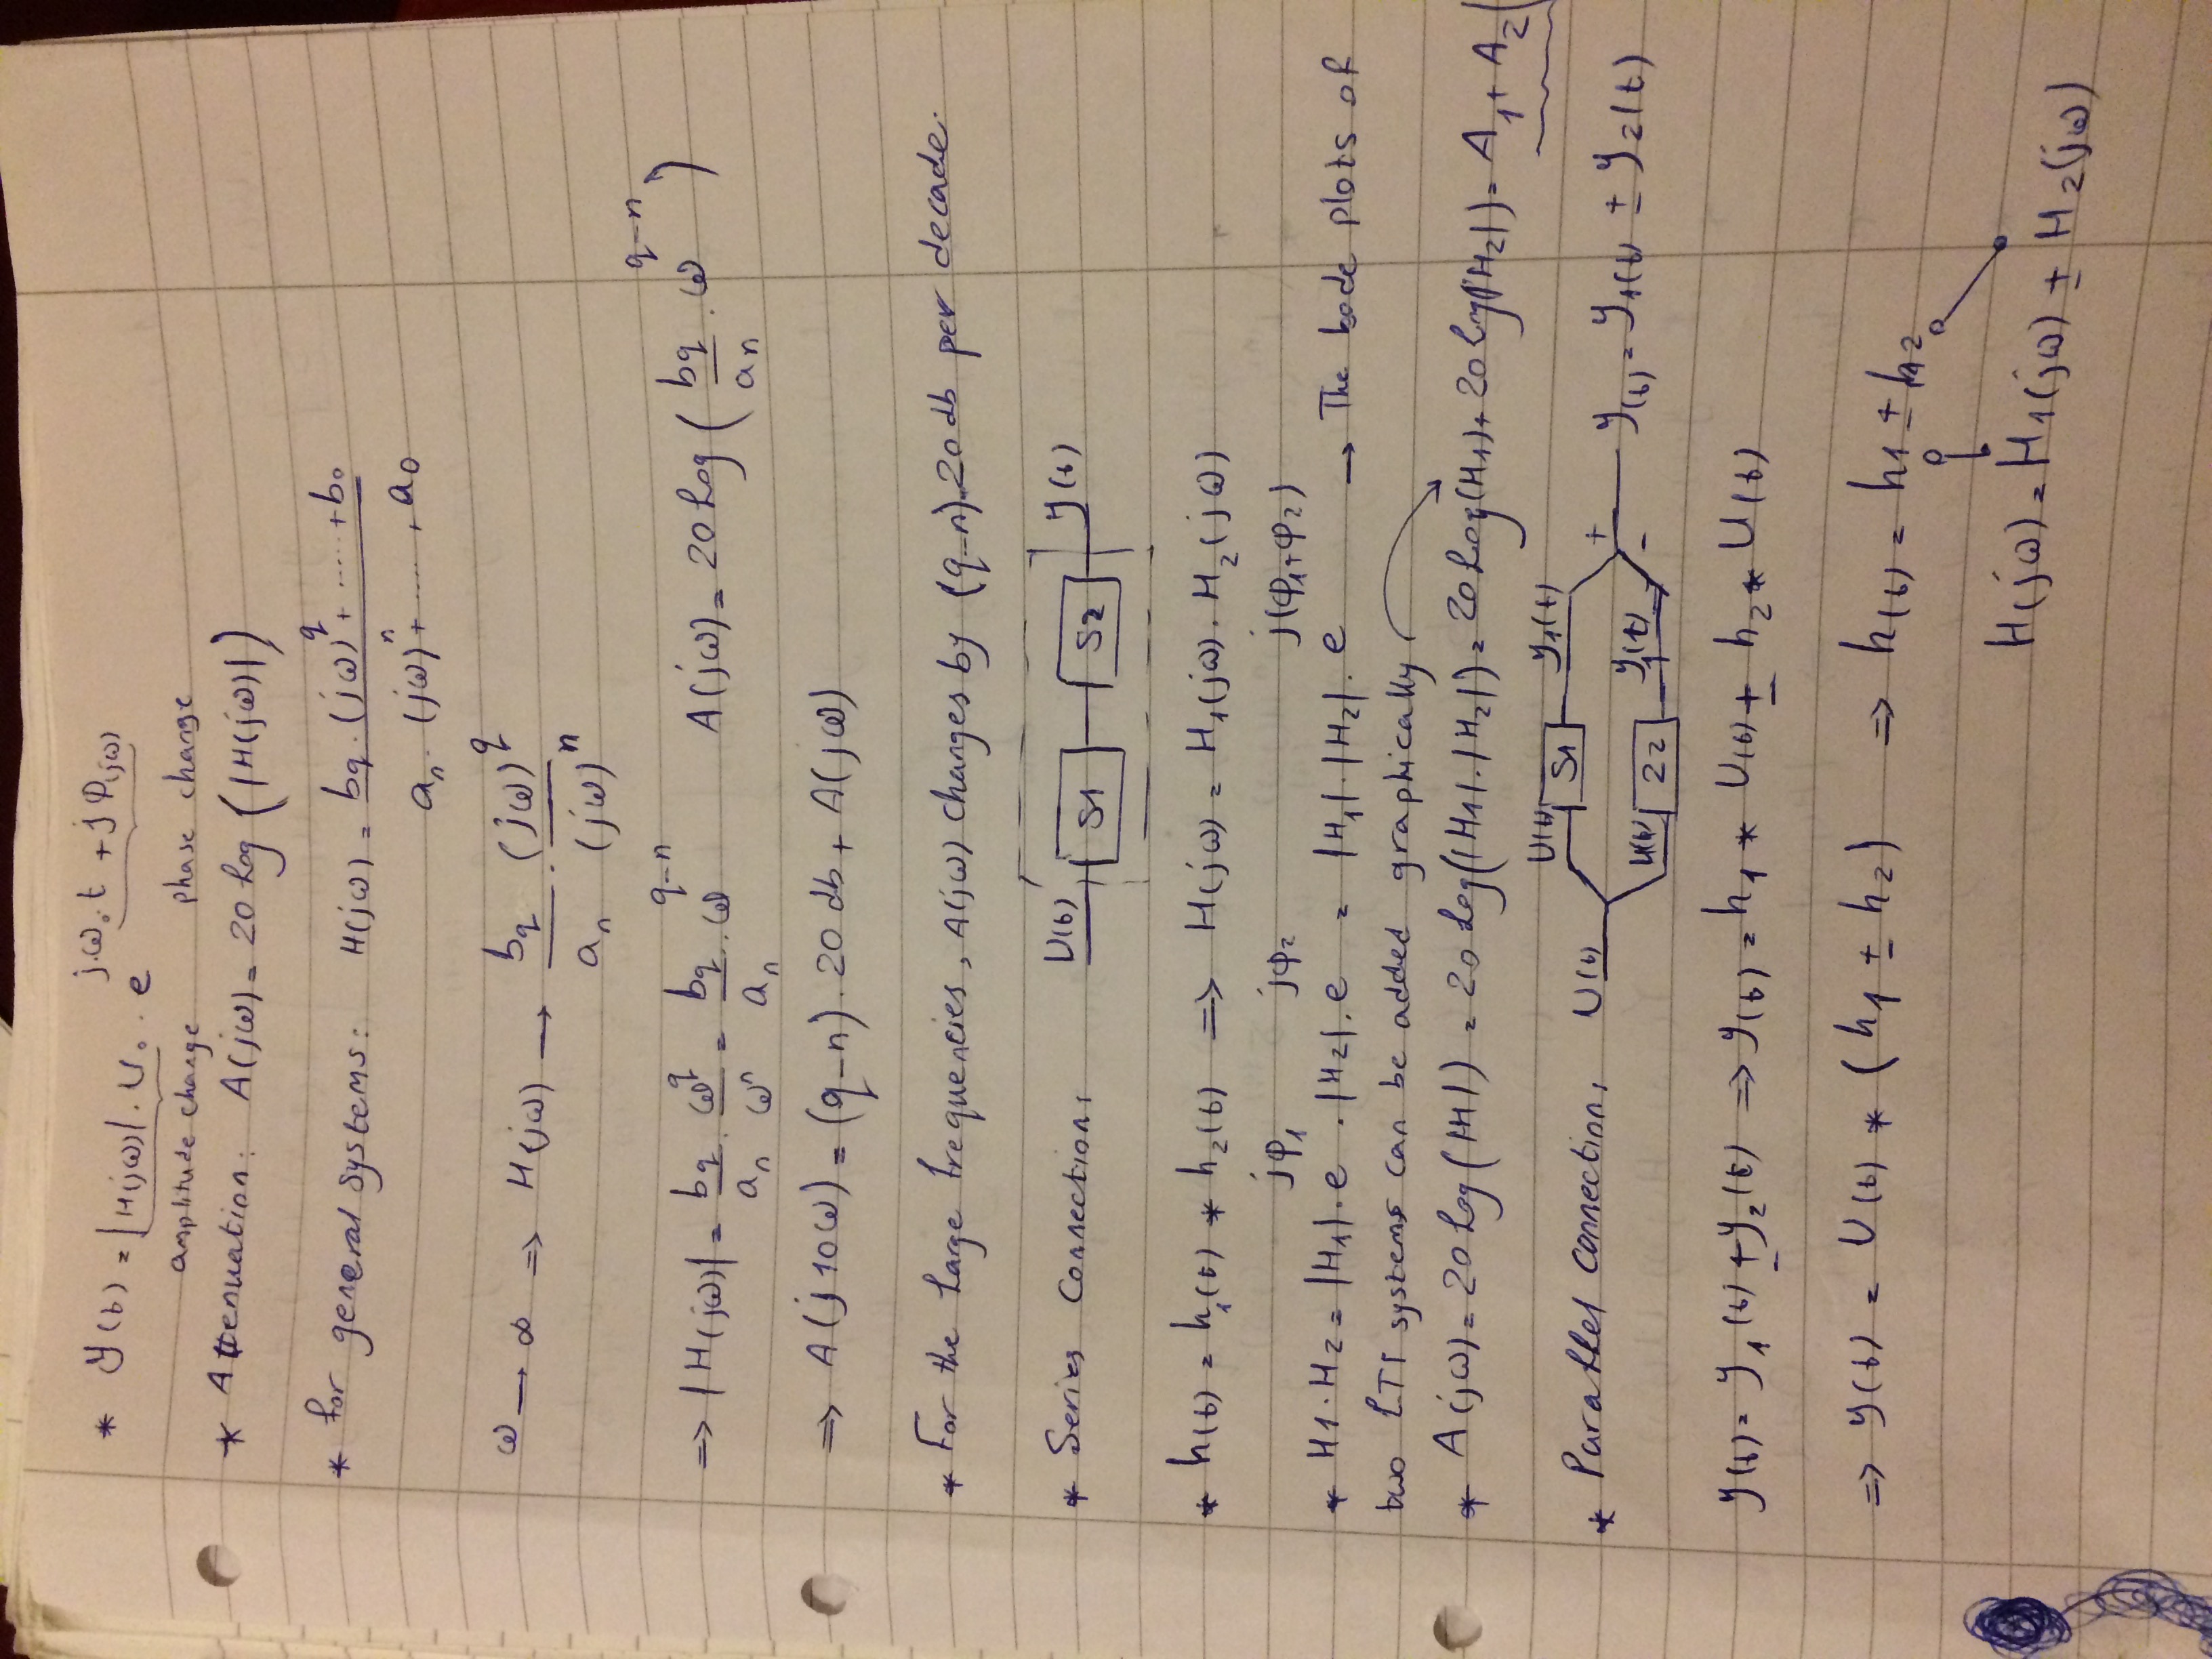 * y(t) = |H(jω)| · U₀ · e^(j·ω₀·t + jφ(jω))
amplitude change phase change
* Attenuation: A(jω) = 20 log (|H(jω)|)
* for general systems: H(jω) = (bq · (jω)^q + ..... + b₀) / (aₙ · (jω)^n + ..... , a₀)
ω → ∞ ⇒ H(jω) → bq/aₙ · (jω)^q/(jω)^n
⇒ |H(jω)| = bq/aₙ · ω^q/ω^n = bq/aₙ · ω^(q-n) A(jω) = 20 log ( bq/an · ω^(q-n) )
⇒ A(j10ω) = (q-n) · 20 db + A(jω)
* For the large frequencies, A(jω) changes by (q-n).20 db per decade.
* Series connection: U(t) S1 S2 y(t)
* h(t) = h₁(t) * h₂(t) ⇒ H(jω) = H₁(jω) · H₂(jω)
* H1·H2 = |H₁|·e^(jφ₁) · |H2|·e^(jφ₂) = |H₁|·|H₂|·e^(j(φ₁+φ₂)) → The bode plots of
two LTI systems can be added graphically
* A(jω) = 20 log(|H|) = 20 log(|H1|·|H2|) = 20 log(H1) + 20 log(|H2|) = A₁ + A₂
* Parallel connection: U(t) U(t) S1 y1(t) U(t) 22 y1(t) + - y(t) = y1(t) ± y2(t)
y(t) = y₁(t) ± y₂(t) ⇒ y(t) = h₁ * U(t) ± h₂ * U(t)
⇒ y(t) = U(t) * (h₁ ± h₂) ⇒ h(t) = h1 ± h2
H(jω) = H1(jω) ± H2(jω)